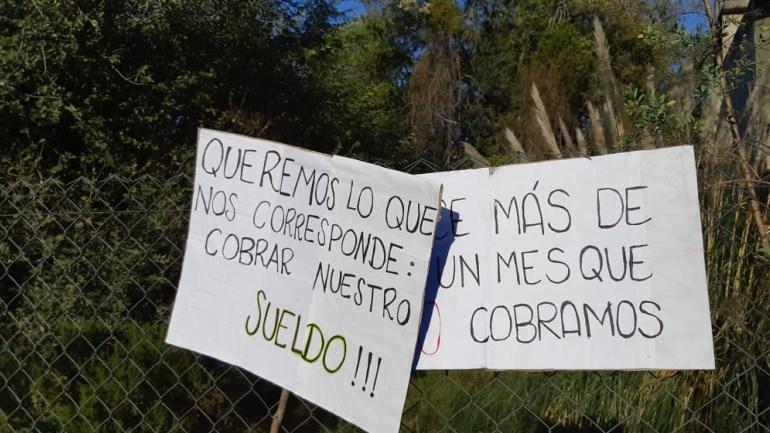 QUEREMOS LO QUE
NOS CORRESPONDE:
COBRAR NUESTRO
SUELDO!!!
CE MÁS DE
UN MES QUE
O COBRAMOS